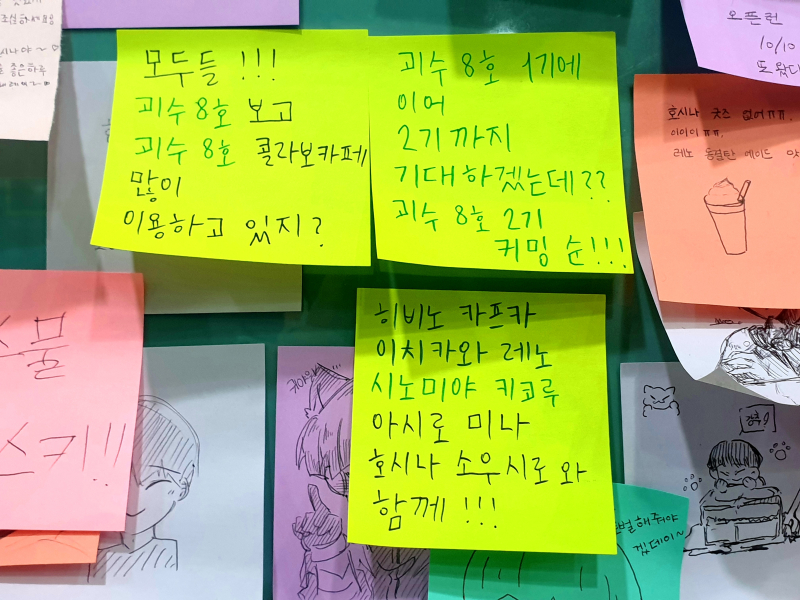 모두들 !!!
괴수 8호 보고
괴수 8호 콜라보카페
많이
이용하고 있지?
괴수 8호 1기에
이어
2기까지
기대하겠는데??
괴수 8호 2기
커밍 순!!!
히비노 카프카
이치카와 레노
시노미야 키코루
아시로 미나
호시나 소우시로와
함께 !!!
오픈런
10/10
또 왔다
호시나 굿즈 없어ㅠㅠ.
이이이ㅠㅠ.
레노 동결탄 에이드 맛
스물
스키!!
겠데이~